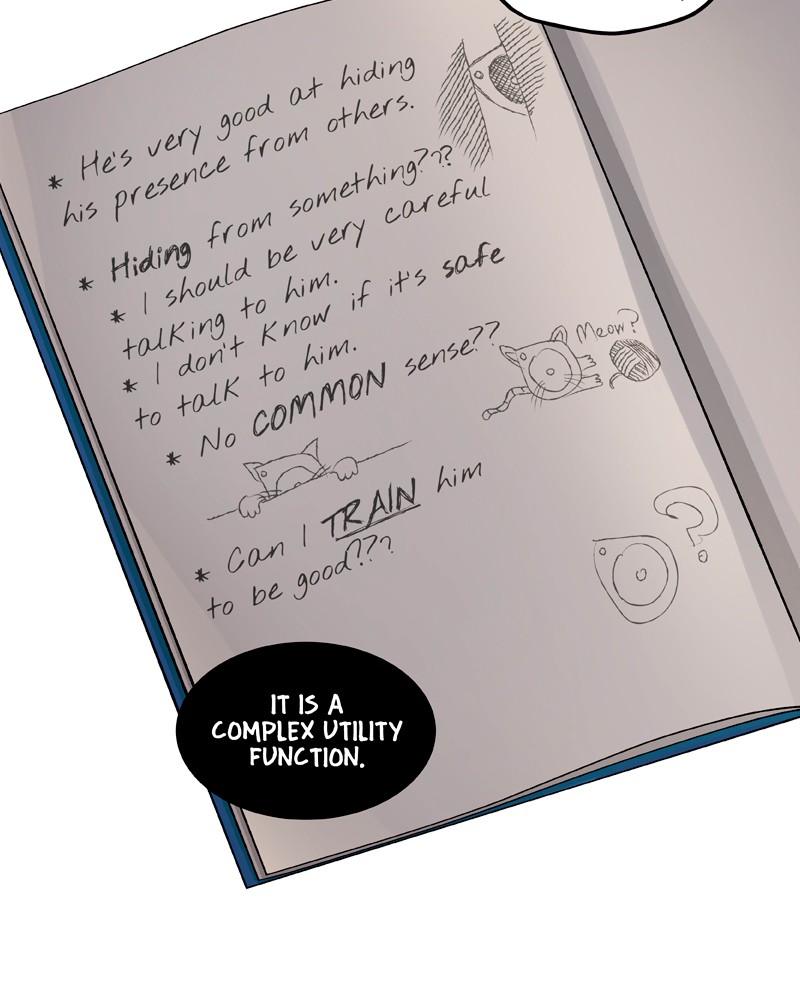 * He's very good at hiding
his presence from others.
* Hiding from something???
* I should be very careful
talking to him.
* I don't know if it's safe
to talk to him.
* No COMMON sense??
Meow?
* Can I TRAIN him
to be good???
?
IT IS A
COMPLEX UTILITY
FUNCTION.